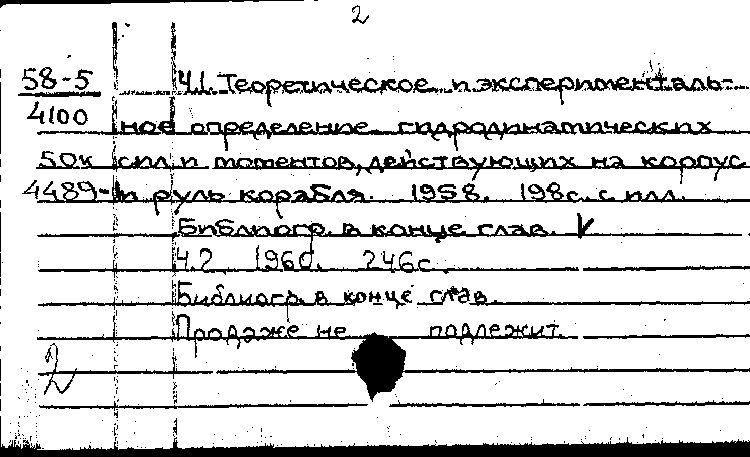 2
58-5 Ч.1. Теоретическое и эксперименталь-
4100 ное определение гидродинамических
50к сил и моментов, действующих на корпус
4489-п и руль корабля. 1958. 198с. с илл.
Библиогр. в конце глав. V
Ч.2. 1960. 246с.
Библиогр. в конце глав.
Продаже не подлежит.
2